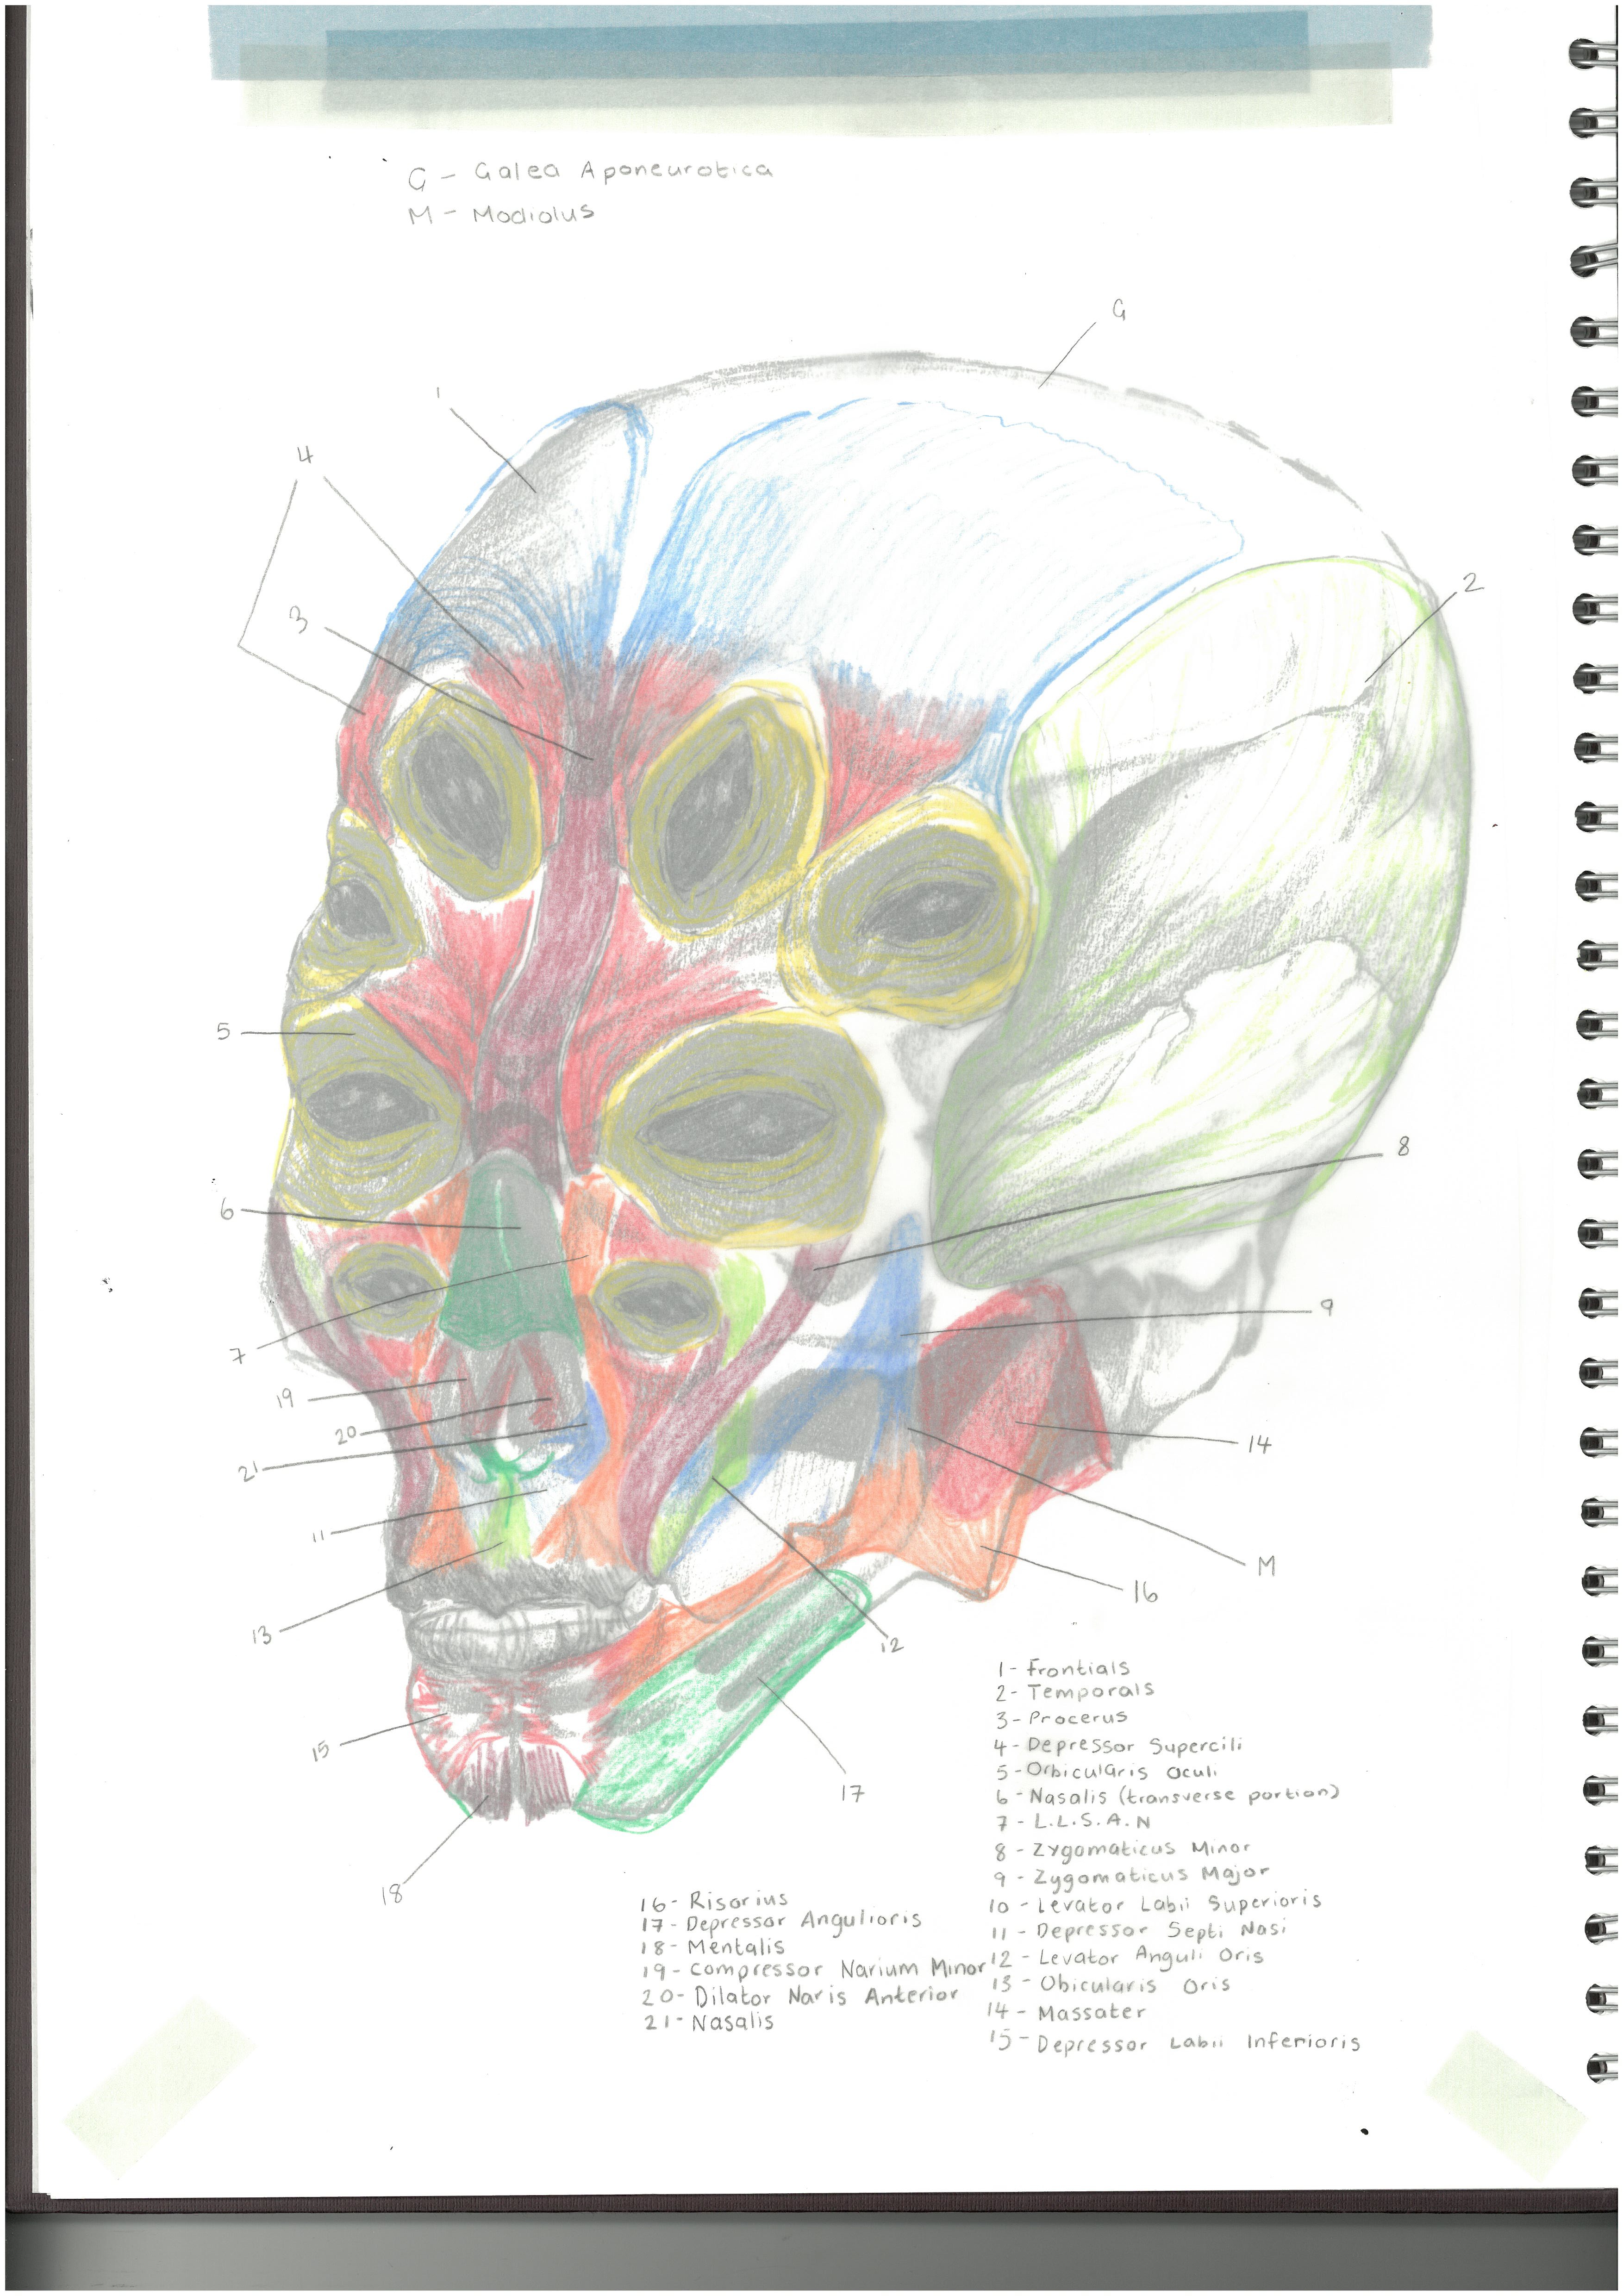 G - Galea Aponeurotica
M - Modiolus
G
1
4
3
2
5
8
6
9
7
19
20
21
14
11
M
16
13
12
15
17
18
1- Frontials
2- Temporals
3- Procerus
4- Depressor Supercili
5- Orbicularis Oculi
6- Nasalis (transverse portion)
7- L.L.S.A.N
8- Zygomaticus Minor
9- Zygomaticus Major
10- Levator Labii Superioris
11- Depressor Septi Nasi
12- Levator Anguli Oris
13- Obicularis Oris
14- Massater
15- Depressor Labii Inferioris
16- Risorius
17- Depressor Angulioris
18- Mentalis
19- Compressor Narium Minor
20- Dilator Naris Anterior
21- Nasalis